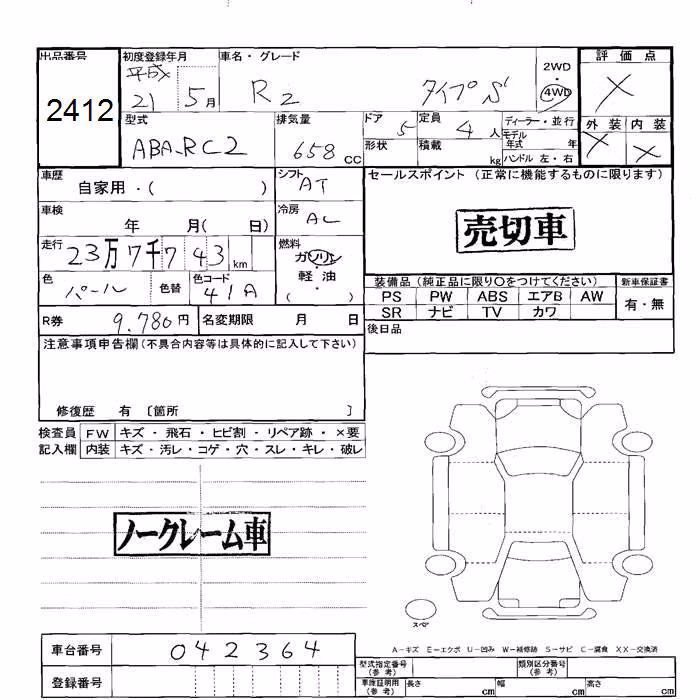 出品番号 初度登録年月 車名・グレード 2WD・4WD 評価点
2412 平成 21 5月 R2 タイプS X
型式 排気量 ドア 定員 ディーラー・並行 外装 内装
ABA-RC2 658cc 5 4人 モデル年式 年 X X
形状 積載 kg ハンドル 左・右
車歴 自家用・( ) シフト AT セールスポイント (正常に機能するものに限ります)
車検 年 月( 日) 冷房 AC 売切車
走行 23万7千743km 燃料 ガソリン・軽油 ( )
色 パール 色替 色コード 41A
装備品 (純正品に限り○をつけてください) 新車保証書
PS PW ABS エアB AW 有・無
SR ナビ TV カワ
R券 9.780円 名変期限 月 日 後日品
注意事項申告欄(不具合内容等は具体的に記入して下さい)
修復歴 有 〔箇所 〕
検査員 FW キズ・飛石・ヒビ割・リペア跡・×要
記入欄 内装 キズ・汚レ・コゲ・穴・スレ・キレ・破レ
ノークレーム車
スペア
A-キズ E-エクボ U-凹み W-補修跡 S-サビ C-腐食 XX-交換済
車台番号 042364
型式指定番号 (参考) 類別区分番号 (参考)
登録番号
車庫証明用 (参考) 長さ cm 幅 cm 高さ cm